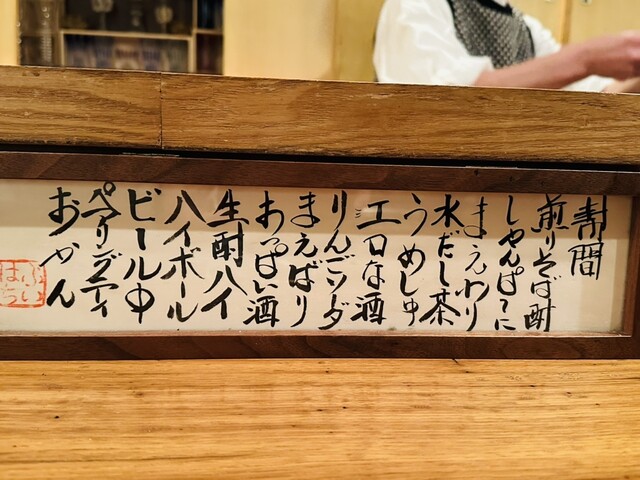 煎りそば酎
しゃんぱ〜に
まえわり
水だし茶
うめしゅ
エロな酒
りんごソダ
まえばり
おっぱい酒
生酎ハイ
ハイボール
ビール中
ペアリングティ
おかん
ふい
はら